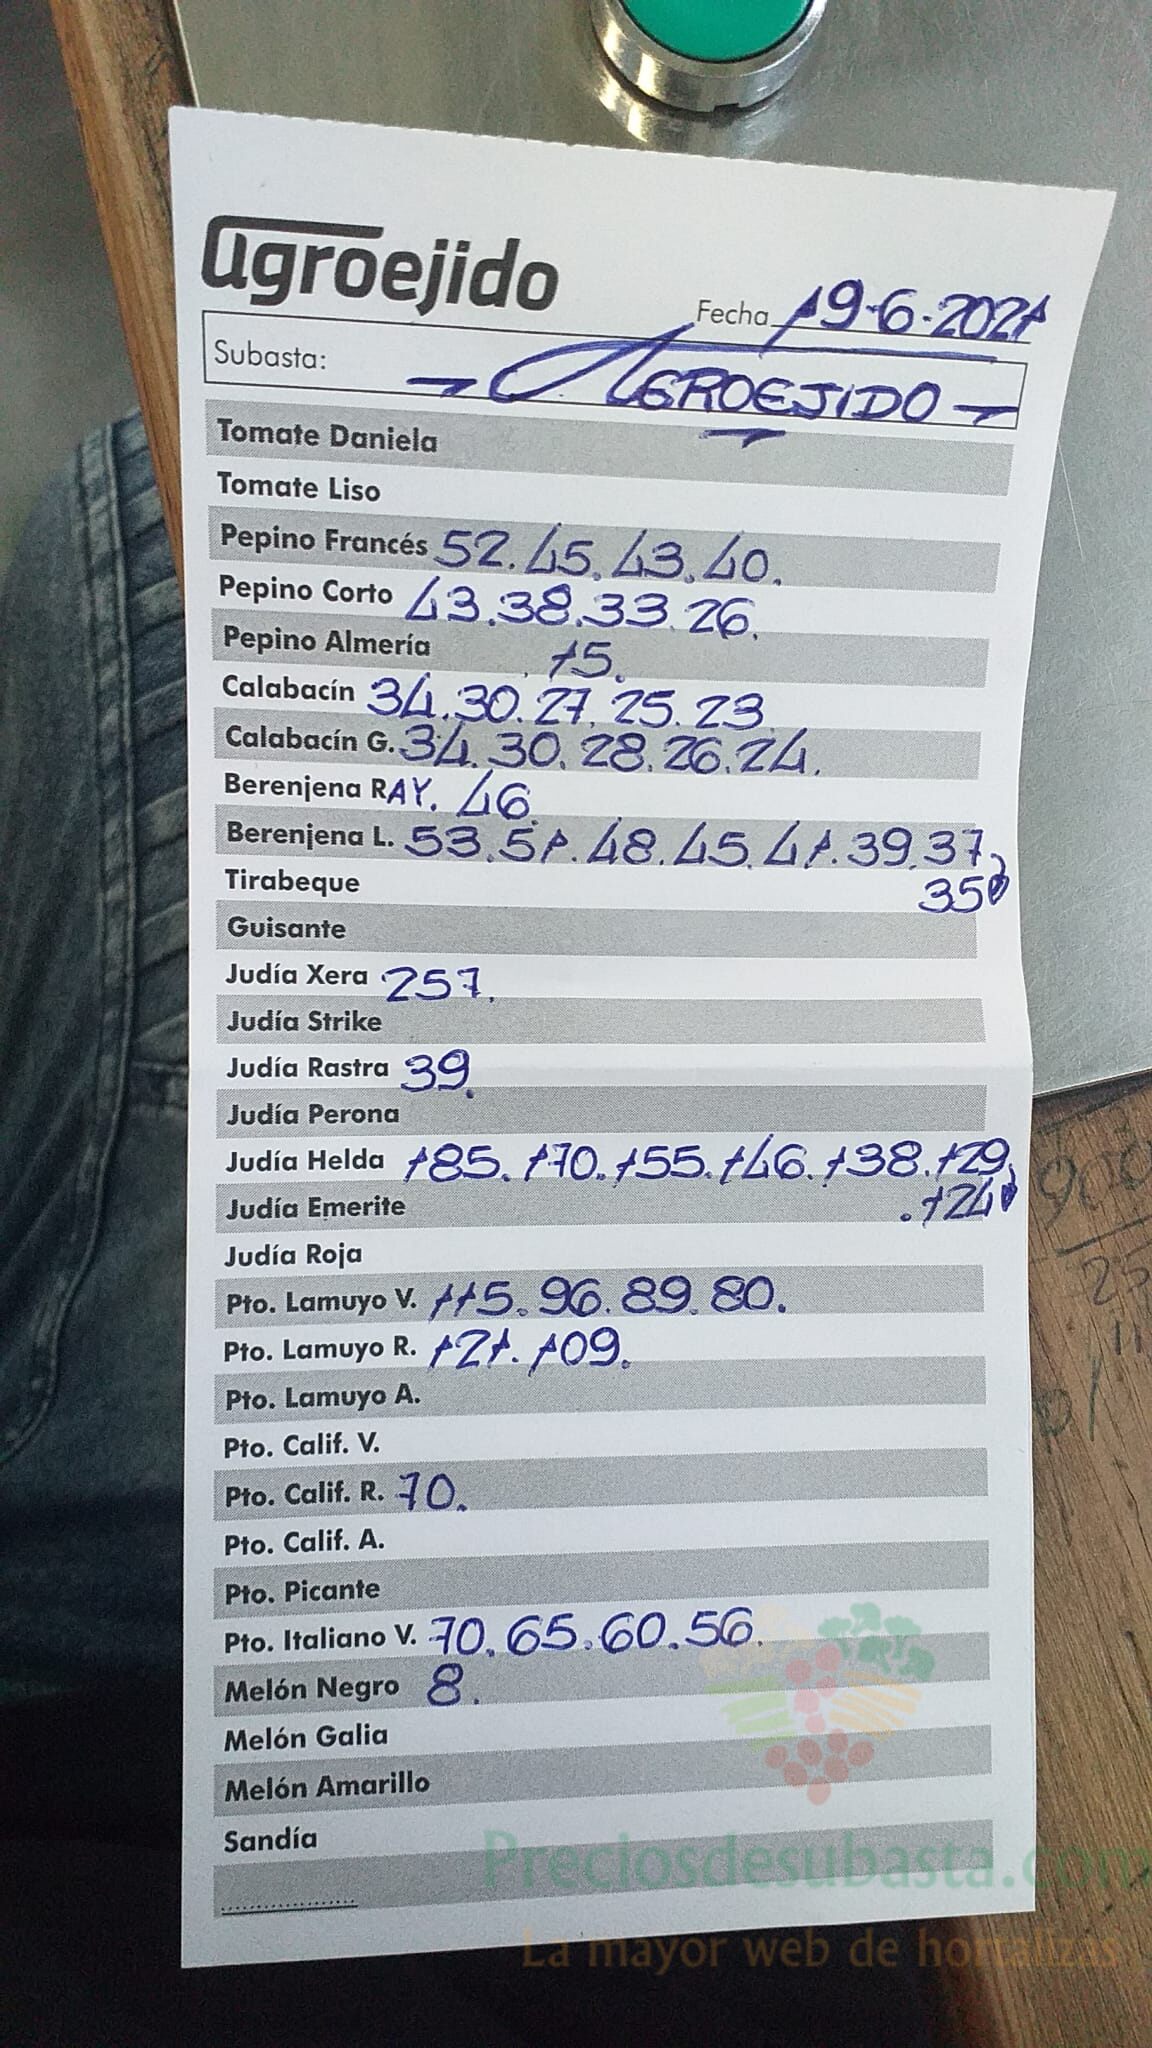 agroejido
Fecha 19-6-2021
Subasta: - AGROEJIDO -
Tomate Daniela
Tomate Liso
Pepino Francés 52.45.43.40.
Pepino Corto 43.38.33.26.
Pepino Almería 15.
Calabacín 34.30.27.25.23
Calabacín G. 34.30.28.26.24.
Berenjena RAY. 46.
Berenjena L. 53.51.48.45.41.39.37,
Tirabeque 35
Guisante
Judía Xera 257.
Judía Strike
Judía Rastra 39.
Judía Perona
Judía Helda 185.170.155.146.138.129,
Judía Emerite .124
Judía Roja
Pto. Lamuyo V. 115.96.89.80.
Pto. Lamuyo R. 121.109.
Pto. Lamuyo A.
Pto. Calif. V.
Pto. Calif. R. 70.
Pto. Calif. A.
Pto. Picante
Pto. Italiano V. 70.65.60.56.
Melón Negro 8.
Melón Galia
Melón Amarillo
Sandía
Preciosdesubasta.com
La mayor web de hortalizas